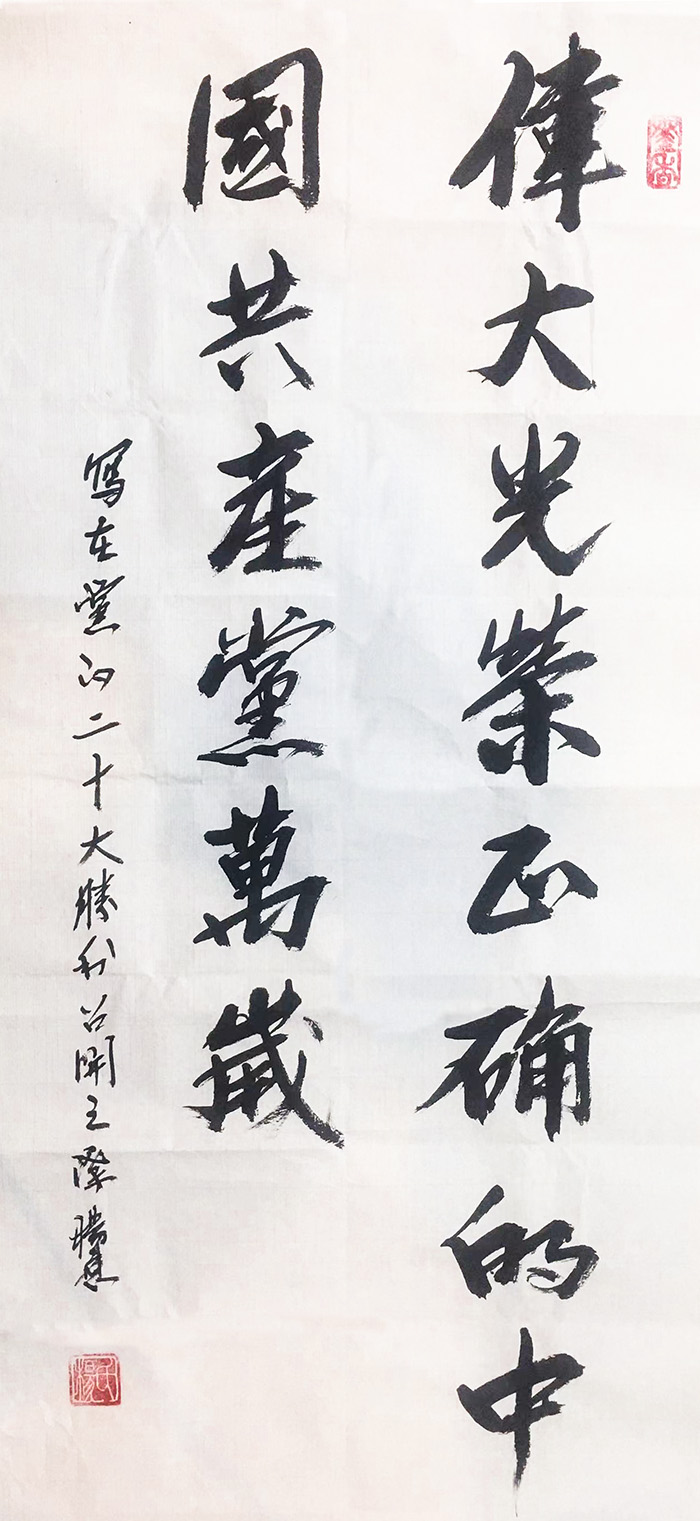 偉大光榮正确的中
國共產黨萬歲
写在黨的二十大勝利召開之際
楊氏